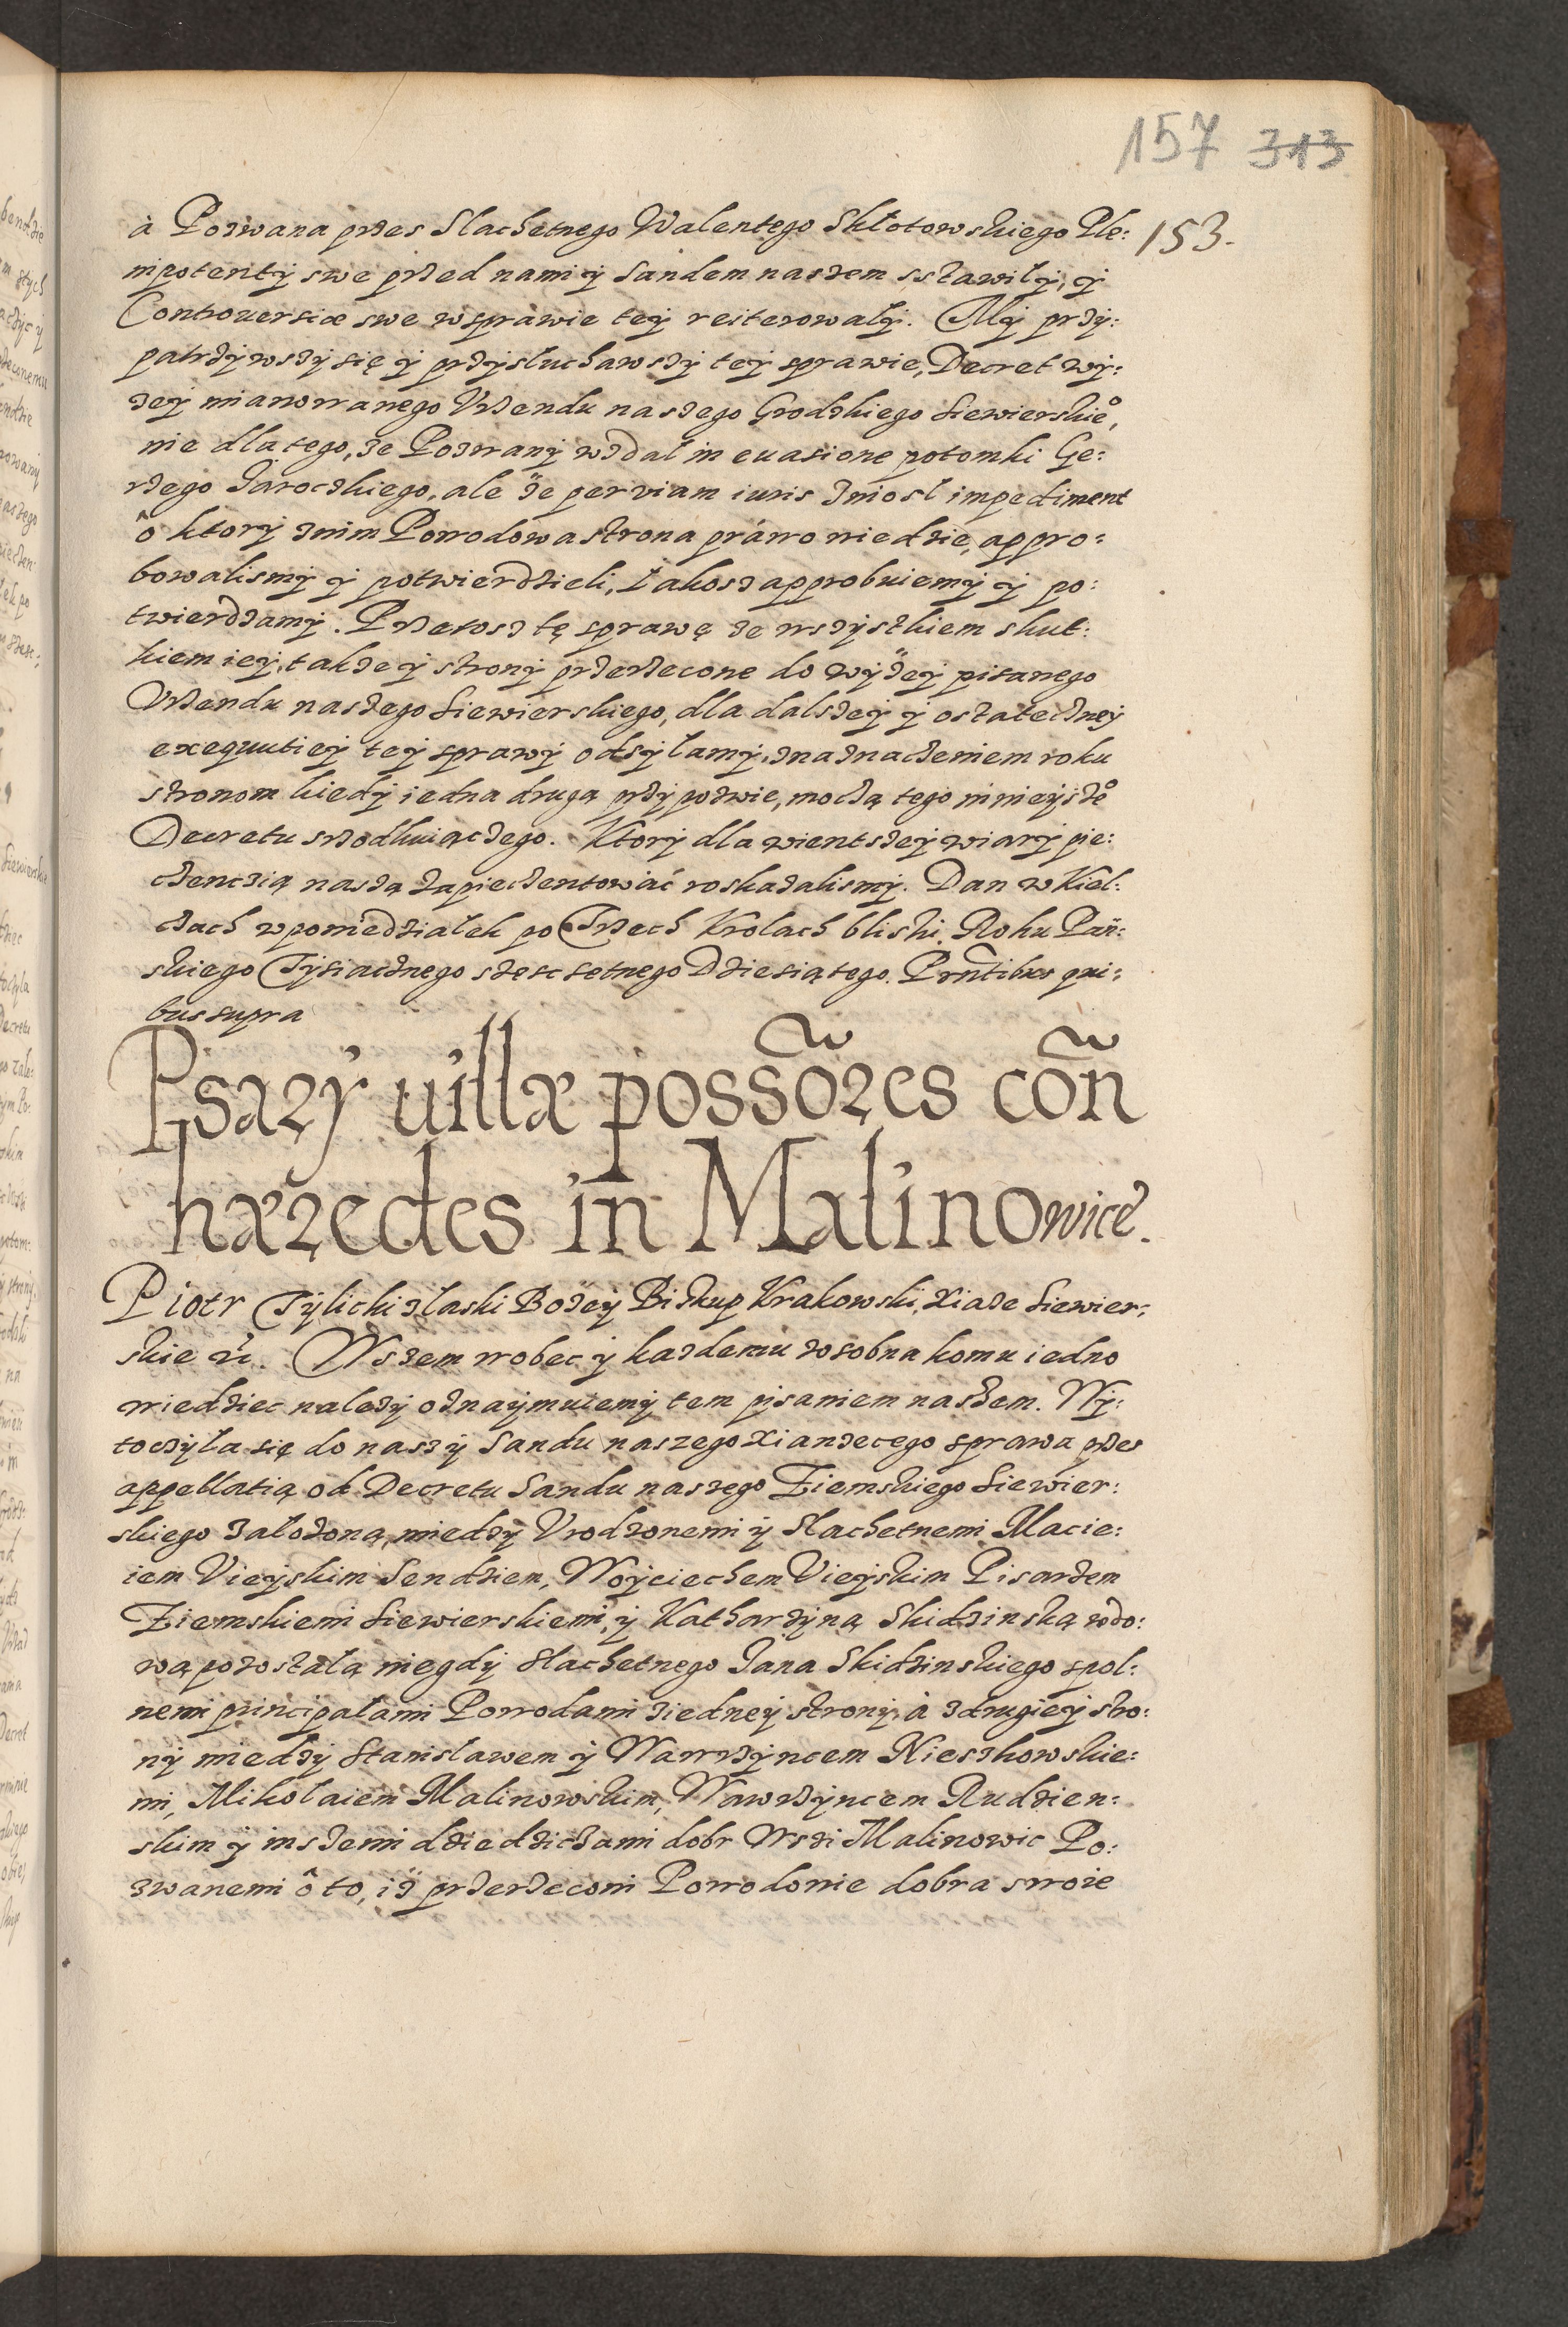 157 313
153.
à Pozwana przes Slachetnego Walentego Skłotowskiego Ple:
nipotenty swe przed nami y Sandem naszem sstawiły, y
Controuersiæ swe wsprawie tey reiterowały. My przy:
patrzywszy się y przysłuchawszy tey sprawie, Decret wy:
zey mianowanego Vrzendu naszego Grodzkiego Siewierskie͛,
nie dla tego, ze Pozwany wzdał in euasione potomki Ge:
rzego Jaroczkiego, ale ze per viam iuris zniosl impediment
ô ktory znim Powodowa strona práwo wiedzie, appro:
bowalismy y potwierdzieli, Iakosz approbuiemy y po:
twierdzamy. Przetosz tę sprawę ze wszystkiem skut:
kiem iey, takze y strony przerzecone do wyzey pisanego
Vrzendu naszego Siewierskiego, dla dalszey y ostateczney
exequutiey tey sprawy odsyłamy, znaznaczeniem roku
stronom kiedy iedna drugą przypozwie, moczą tego ninieysze͛
Decretu srzodkuiączego. Ktory dla wientszey wiary pie:
czenczią naszą zapieczentowáć roskazalismy. Dan w Kiel:
czach wponiedziałek po Trzech Krolach bliski. Roku Pań:
skiego Tysiacznego szescsetnego Dziesiątego. Prñtibus qui:
bus supra
Psary uillæ possõres cõn
hæredes in Malinowice.
Piotr Tylicki zlaski Bozey Biskup Krakowski, Xiaze Siewier:
skie &c. Wszem wobec y kazdemu zosobna komu iedno
wiedziec nalezy oznaymuiemy tem pisaniem naszem. Wy:
toczyła się do naszy Sandu naszego Xianzecego sprawa przes
appellatią od Decretu Sandu naszego Ziemskiego Siewier:
skiego załozoną, miedzy Vrodzonemi y Slachetnemi Macie:
iem Vieyskim Sendziem, Woyciechem Vieyskim Pisarzem
Ziemskiemi Siewierskiemi, y Katharzyną Skidzinską wdo:
wą pozostałą niegdy Slachetnego Jana Skidzinskiego spol:
nemi principałami Powodami ziedney strony, à zdrugiey stro:
ny miedzy Stanisławem y Wawrzyncem Nieszkowskie:
mi, Mikołaiem Malinowskim, Wawrzyncem Rudzien:
skim y inszemi dziedziczami dobr Wszi Malinowic Po:
zwanemi ô to, iż przerzeconi Powodowie dobra swoie